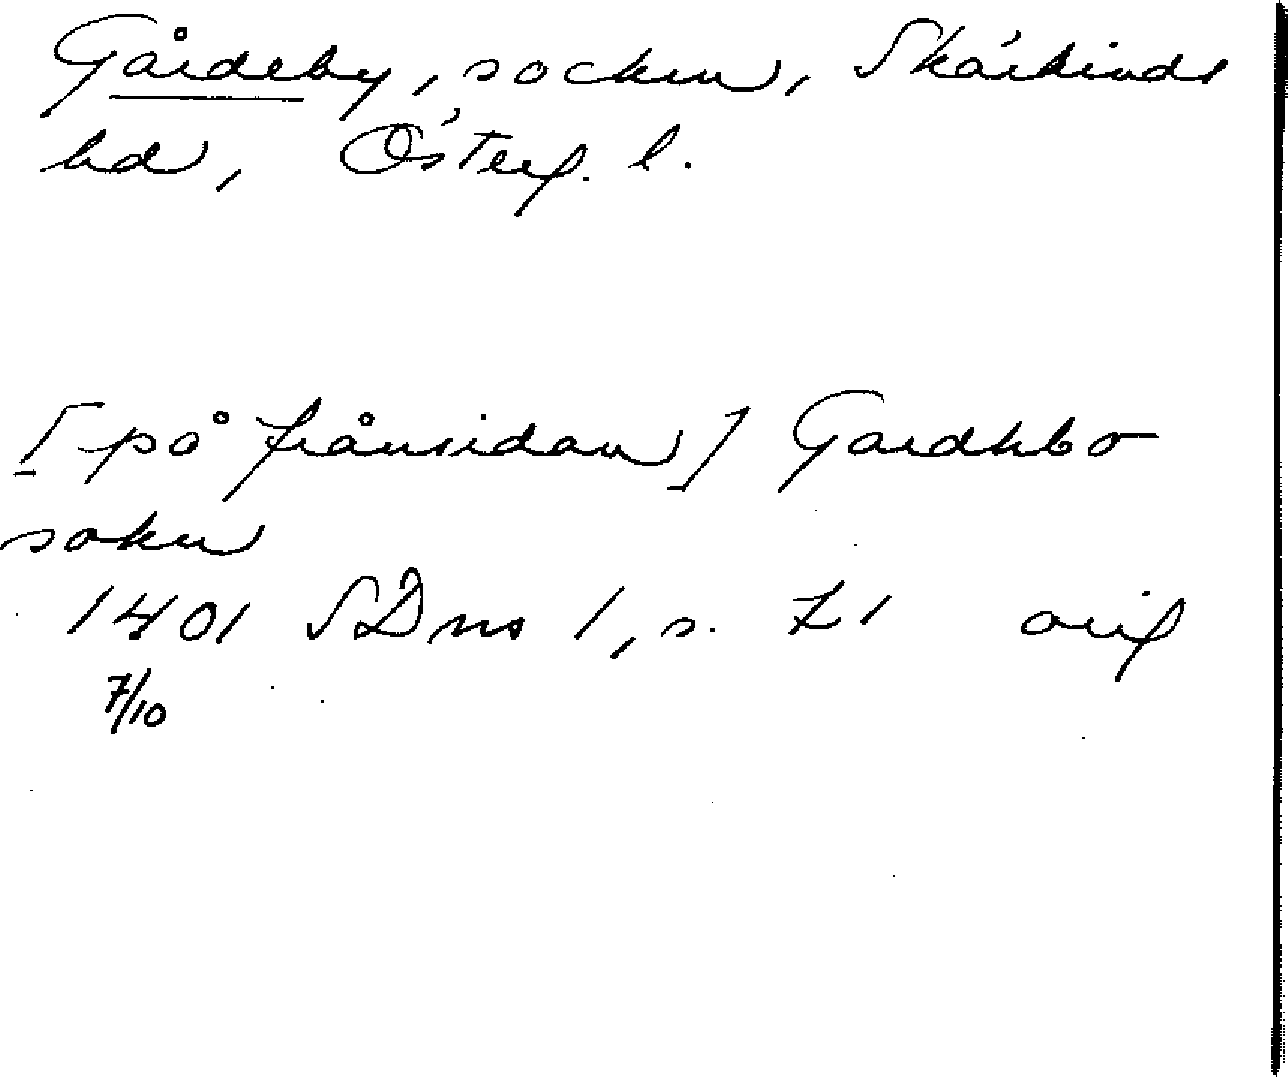 Gårdeby, socken, Skärkinds
hd, Österg. l.
[på frånsidan] Gardhbo
sokn
1401 SDns 1, s. 71 orig
7/10